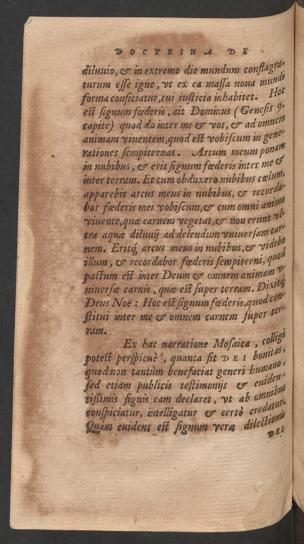 DOCTRINA DE
diluuio, & in extremo die mundum conflagra-
turum esse igne, vt ex ea massa noua mundi
forma conficiatur, cui iusticia inhabitet. Hoc
est signum fœderis, ait Dominus (Genesis 9.
capite) quod do inter me & vos, & ad omnem
animam viuentem, quod est vobiscum in gene-
rationes sempiternas. Arcum meum ponam
in nubibus, & erit signum fœderis inter me &
inter terram. Et cum obduxero nubibus cœlum,
apparebit arcus meus in nubibus, & recorda-
bor fœderis mei vobiscum, & cum omni anima
viuente, quæ carnem vegetat, & non erunt vl-
tra aquæ diluuij ad delendum vniuersam car-
nem. Eritq́; arcus meus in nubibus, & videbo
illum, & recordabor fœderis sempiterni, quod
pactum est inter Deum & omnem animam v-
niuersæ carnis, quæ est super terram. Dixitq́;
Deus Noë: Hoc est signum fœderis, quod con-
stitui inter me & omnem carnem super ter-
ram.
Ex hac narratione Mosaica, colligi
potest perspicuè, quanta sit DEI bonitas,
quod non tantùm benefaciat generi humano,
sed etiam publicis testimonijs & euiden-
tissimis signis eam declaret, vt ab omnibus
conspiciatur, intelligatur & certò credatur.
Quàm euidens est signum veræ dilectionis
DEI